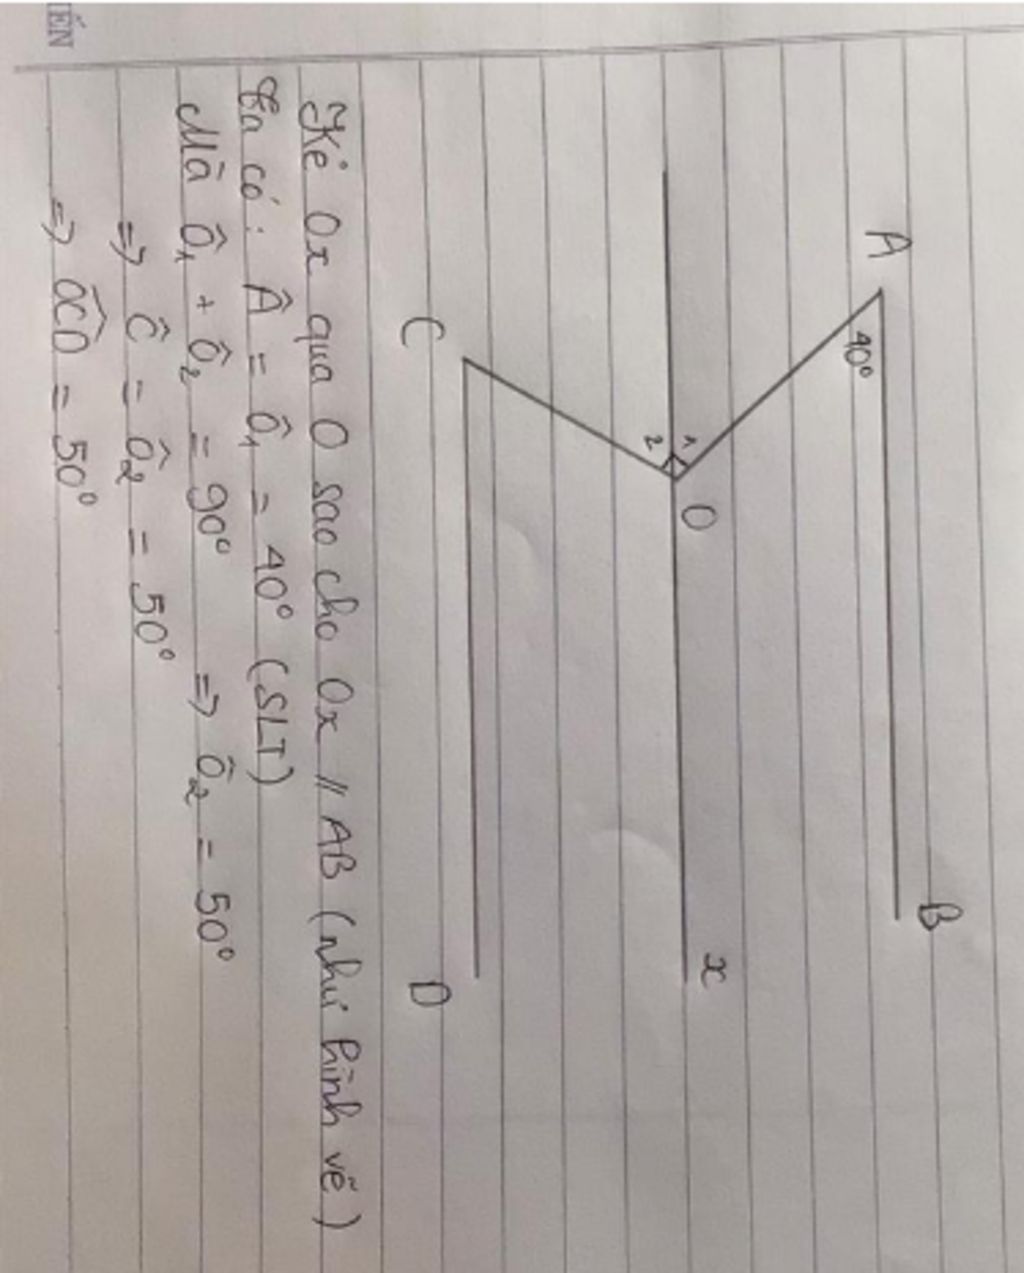 IẾN
A
B
40°
1
O
2
x
C
D
Kẻ Ox qua O sao cho Ox // AB (như hình vẽ)
Ta có: Â = Ô₁ = 40° (SLT)
Mà Ô₁ + Ô₂ = 90° => Ô₂ = 50°
=> Ĉ = Ô₂ = 50°
=> OĈD = 50°